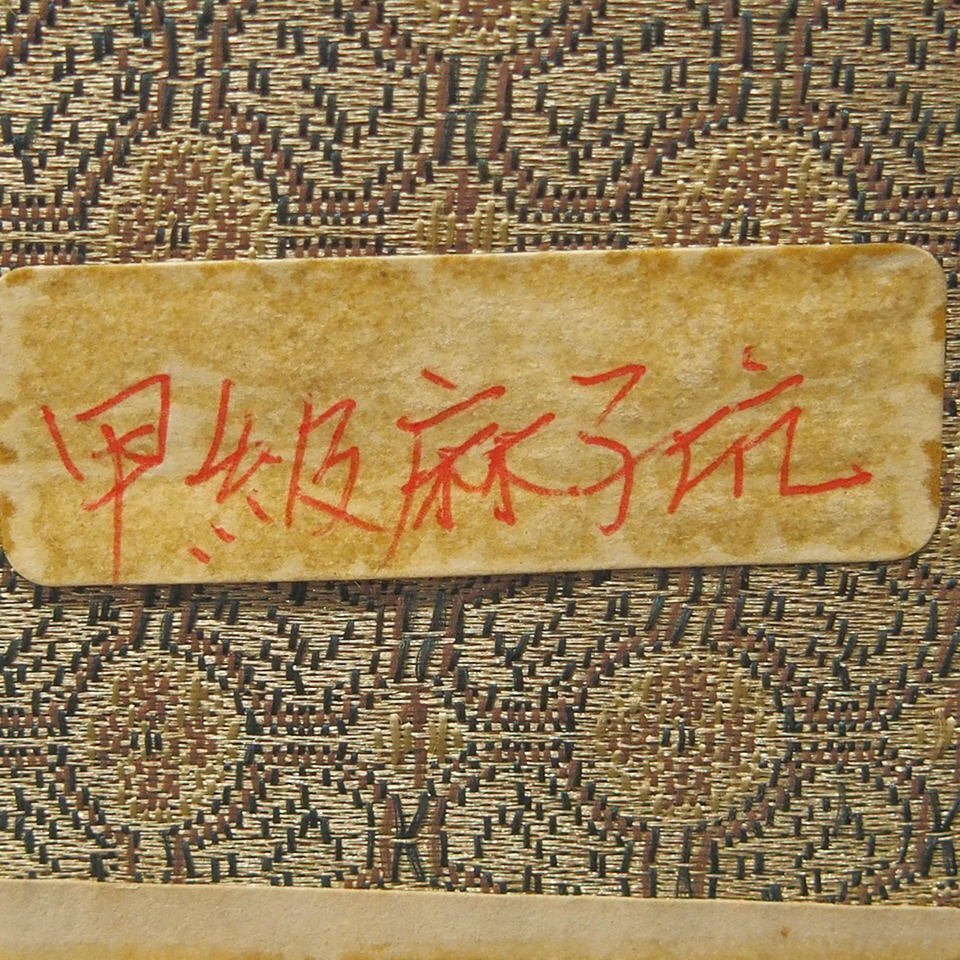 甲級麻子坑